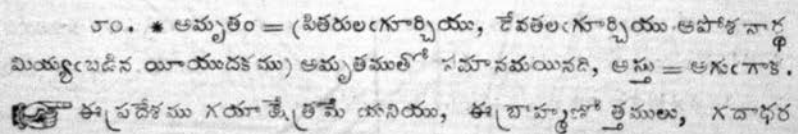 ౮౦. * అమృతం = (పితరులఁగూర్చియు, దేవతలఁగూర్చియు ఆపోశనార్థ
మియ్యఁబడిన యీయుదకము) అమృతముతో సమానమయినది, అస్తు = అగుఁగాక.
☞ ఈ ప్రదేశము గయాక్షేత్రమే యనియు, ఈ బ్రాహ్మణోత్తములు, గదాధర